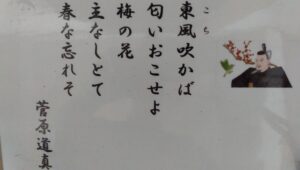 東風吹かば
こち
匂いおこせよ
梅の花
主なしとて
春な忘れそ
菅原道真